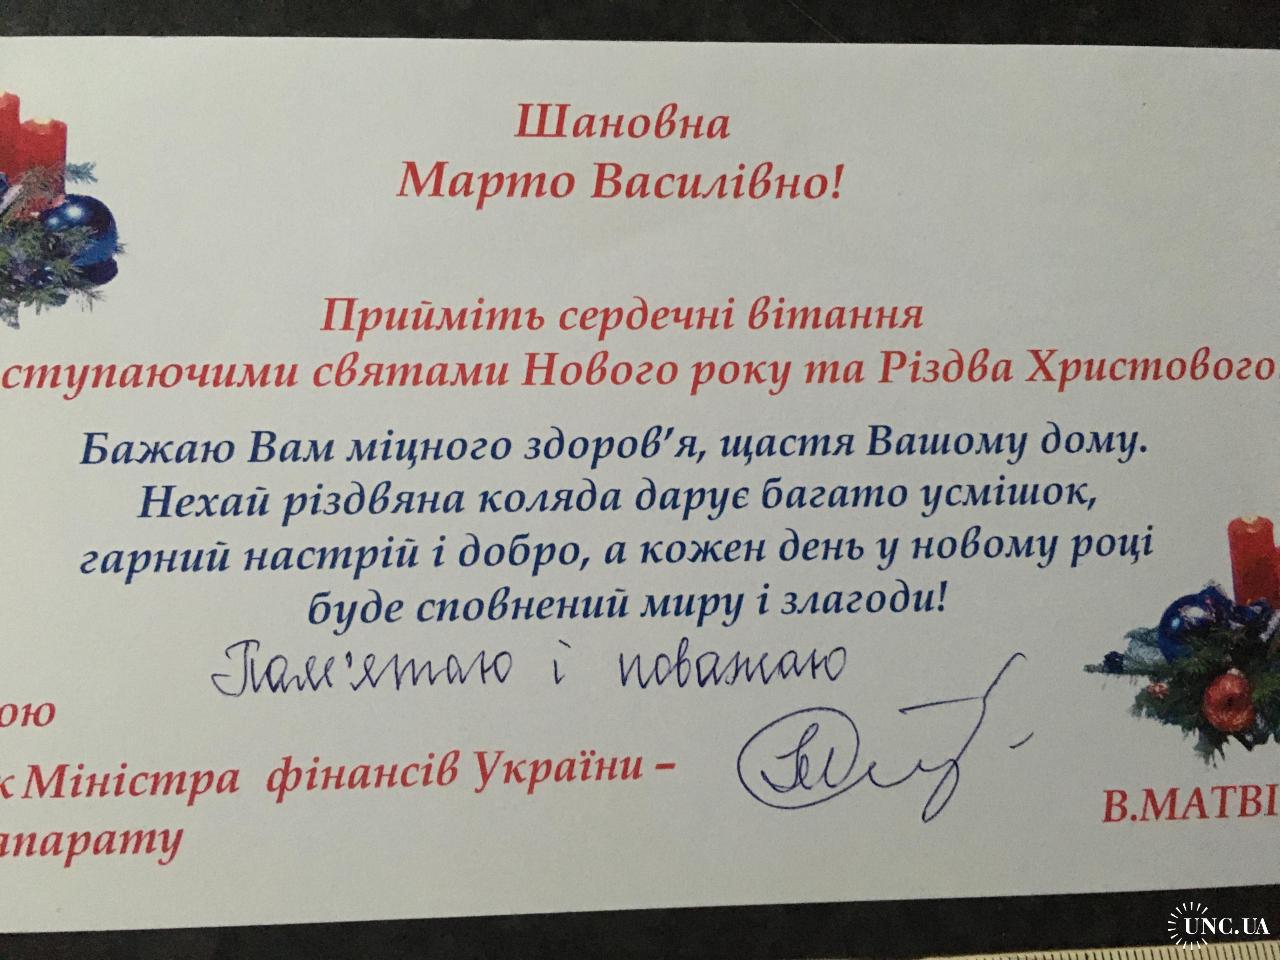 Шановна
Марто Василівно!
Прийміть сердечні вітання
ступаючими святами Нового року та Різдва Христового
Бажаю Вам міцного здоров'я, щастя Вашому дому.
Нехай різдвяна коляда дарує багато усмішок,
гарний настрій і добро, а кожен день у новому році
буде сповнений миру і злагоди!
Пам'ятаю і поважаю
ою
к Міністра фінансів України –
апарату
В.МАТВІ
UNC.UA